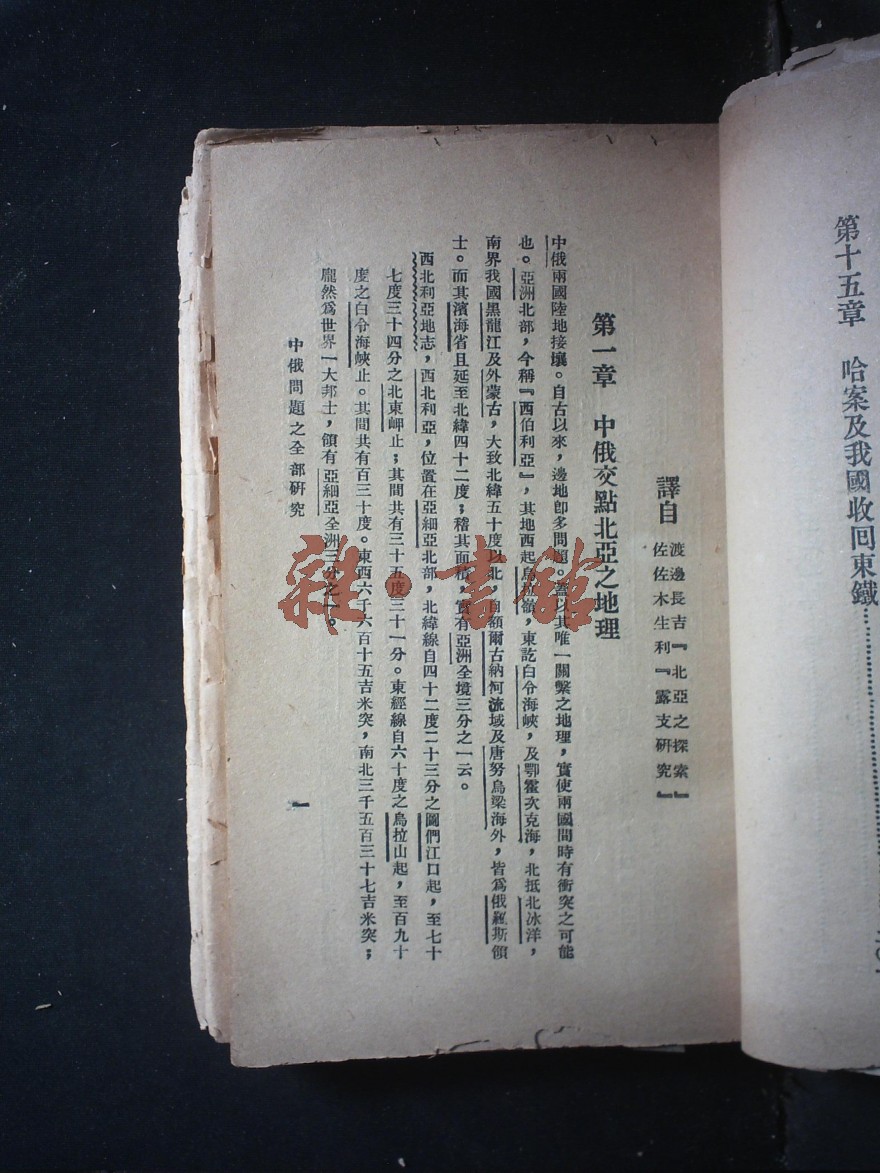 第十五章　哈案及我國收回東鐵…………………
譯自
渡邊長吉『北亞之探索』
佐佐木生利『露支研究』
第一章　中俄交點北亞之地理
中俄兩國陸地接壤。自古以來，邊地卽多問題，蓋以其唯一關繫之地理，實使兩國間時有衝突之可能
也。亞洲北部，今稱『西伯利亞』，其地西起烏拉嶺，東訖白令海峽，及鄂霍次克海，北抵北冰洋，
南界我國黑龍江及外蒙古，大致北緯五十度以北，自額爾古納河流域及唐努烏梁海外，皆爲俄羅斯領
士。而其濱海省且延至北緯四十二度；稽其面積，實有亞洲全境三分之一云。
西北利亞地志，西北利亞，位置在亞細亞北部，北緯線自四十二度二十三分之圖們江口起，至七十
七度三十四分之北東岬止；其間共有三十五度三十一分。東經線自六十度之烏拉山起，至百九十
度之白令海峽止。其間共有百三十度。東西六千六百十五吉米突，南北三千五百三十七吉米突；
龐然爲世界一大邦士，領有亞細亞全洲三分之一。
中俄問題之全部研究
一
雜·書館